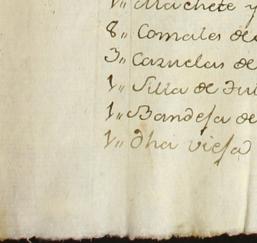 1,, Machete y
8,, Comales de
3,, Cazuelas de
1,, Silla de
1,, Bandeja de
1,, Dha vieja